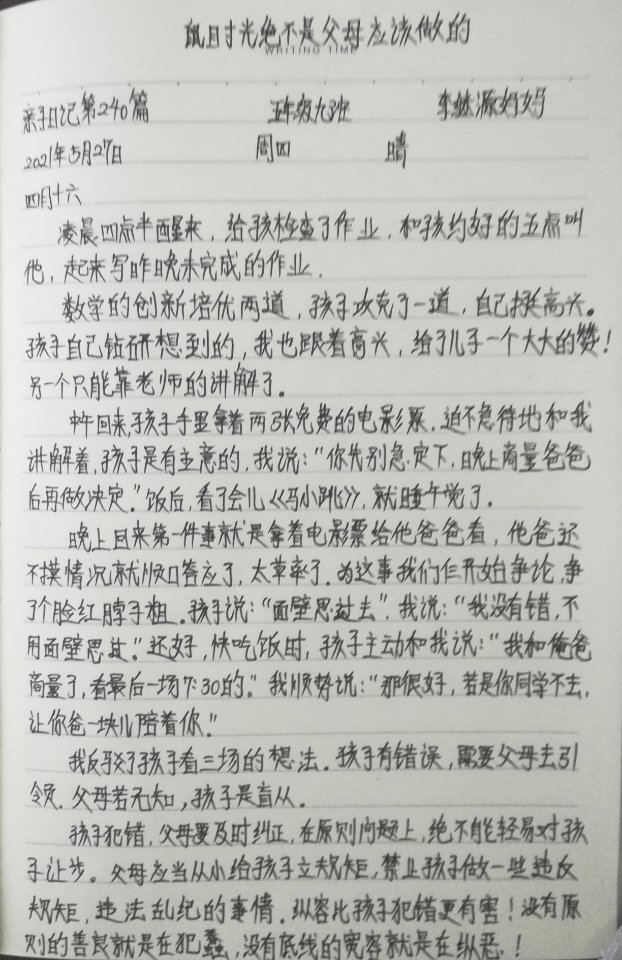 鼠目寸光绝不是父母应该做的
WRITING TIME
亲子日记第240篇 五年级九班 李懿源妈妈
2021年5月27日 周四 晴
四月十六
凌晨四点半醒来，给孩检查了作业，和孩约好的五点叫
他，起来写昨晚未完成的作业．
数学的创新培优两道，孩子攻克了一道，自己挺高兴。
孩子自己钻研想到的，我也跟着高兴，给了儿子一个大大的赞！
另一个只能靠老师的讲解了。
中午回来，孩子手里拿着两张免费的电影票，迫不急待地和我
讲解着，孩子是有主意的，我说：“你先别急，定下，晚上商量爸爸
后再做决定．”饭后，看了会儿《马小跳》，就睡午觉了．
晚上回来第一件事就是拿着电影票给他爸爸看，他爸还
不摸情况就顺口答应了，太草率了．为这事我们仨开始争论，争
了个脸红脖子粗．孩子说：“面壁思过去”．我说：“我没有错，不
用面壁思过．”还好，快吃饭时，孩子主动和我说：“我和俺爸
商量了，看最后一场7:30的．”我顺势说：“那很好，若是你同学不去，
让你爸一块儿陪着你．”
我反驳了孩子看三场的想法．孩子有错误，需要父母去引
领．父母若无知，孩子是盲从．
孩子犯错，父母要及时纠正，在原则问题上，绝不能轻易对孩
子让步。父母应当从小给孩子立规矩，禁止孩子做一些违反
规矩，违法乱纪的事情．纵容比孩子犯错更有害！没有原
则的善良就是在犯蠢，没有底线的宽容就是在纵恶．！